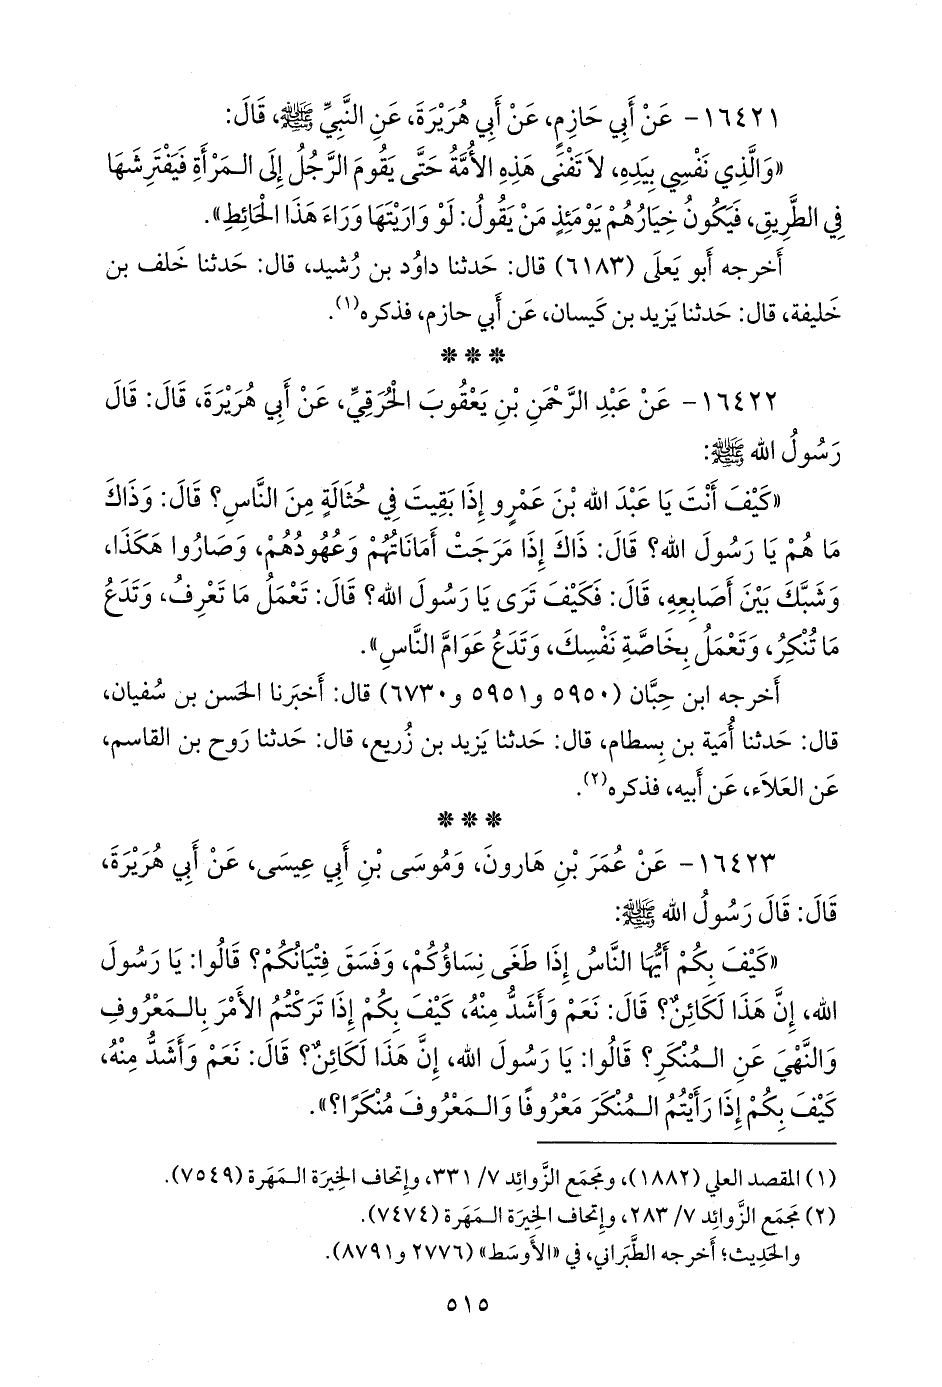 ١٦٤٢١- عَنْ أَبِي حَازِمٍ، عَنْ أَبِي هُرَيْرَةَ، عَنِ النَّبِيِّ ﷺ، قَالَ:
«وَالَّذِي نَفْسِي بِيَدِهِ، لاَ تَفْنَى هَذِهِ الأُمَّةُ حَتَّى يَقُومَ الرَّجُلُ إِلَى الـمَرْأَةِ فَيَفْتَرِشَهَا
فِي الطَّرِيقِ، فَيَكُونُ خِيَارُهُمْ يَوْمَئِذٍ مَنْ يَقُولُ: لَوْ وَارَيْتَهَا وَرَاءَ هَذَا الْحَائِطِ».
أَخرجه أَبو يَعلَى (٦١٨٣) قال: حَدثنا داوُد بن رُشيد، قال: حَدثنا خَلف بن
خَليفة، قال: حَدثنا يَزيد بن كَيسان، عَن أَبي حازم، فذكره(١).
* * *
١٦٤٢٢- عَنْ عَبْدِ الرَّحْمَنِ بْنِ يَعْقُوبَ الْحُرَقِيِّ، عَنْ أَبِي هُرَيْرَةَ، قَالَ: قَالَ
رَسُولُ الله ﷺ:
«كَيْفَ أَنْتَ يَا عَبْدَ الله بْنَ عَمْرٍو إِذَا بَقِيتَ فِي حُثَالَةٍ مِنَ النَّاسِ؟ قَالَ: وَذَاكَ
مَا هُمْ يَا رَسُولَ الله؟ قَالَ: ذَاكَ إِذَا مَرَجَتْ أَمَانَاتُهُمْ وَعُهُودُهُمْ، وَصَارُوا هَكَذَا،
وَشَبَّكَ بَيْنَ أَصَابِعِهِ، قَالَ: فَكَيْفَ تَرَى يَا رَسُولَ الله؟ قَالَ: تَعْمَلُ مَا تَعْرِفُ، وَتَدَعُ
مَا تُنْكِرُ، وَتَعْمَلُ بِخَاصَّةِ نَفْسِكَ، وَتَدَعُ عَوَامَّ النَّاسِ».
أَخرجه ابن حِبَّان (٥٩٥٠ و٥٩٥١ و٦٧٣٠) قال: أَخبَرنا الحَسن بن سُفيان،
قال: حَدثنا أُمَية بن بِسطام، قال: حَدثنا يَزيد بن زُريع، قال: حَدثنا رَوح بن القاسم،
عَن العَلاَء، عَن أَبيه، فذكره(٢).
* * *
١٦٤٢٣- عَنْ عُمَرَ بْنِ هَارونَ، وَمُوسَى بْنِ أَبِي عِيسَى، عَنْ أَبِي هُرَيْرَةَ،
قَالَ: قَالَ رَسُولُ الله ﷺ:
«كَيْفَ بِكُمْ أَيُّهَا النَّاسُ إِذَا طَغَى نِسَاؤُكُمْ، وَفَسَقَ فِتْيَانُكُمْ؟ قَالُوا: يَا رَسُولَ
الله، إِنَّ هَذَا لَكَائِنٌ؟ قَالَ: نَعَمْ وَأَشَدُّ مِنْهُ، كَيْفَ بِكُمْ إِذَا تَرَكْتُمُ الأَمْرَ بِالـمَعْرُوفِ
وَالنَّهْيَ عَنِ الـمُنْكَرِ؟ قَالُوا: يَا رَسُولَ الله، إِنَّ هَذَا لَكَائِنٌ؟ قَالَ: نَعَمْ وَأَشَدُّ مِنْهُ،
كَيْفَ بِكُمْ إِذَا رَأَيْتُمُ الـمُنْكَرَ مَعْرُوفًا وَالـمَعْرُوفَ مُنْكَرًا؟».
(١) المقصد العلي (١٨٨٢)، ومَجمَع الزَّوائِد ٧/ ٣٣١، وإتحاف الخِيرَة الـمَهَرة (٧٥٤٩).
(٢) مَجمَع الزَّوائِد ٧/ ٢٨٣، وإتحاف الخِيرَة الـمَهَرة (٧٤٧٤).
والحَدِيث؛ أَخرجه الطَّبَراني، في «الأَوسَط» (٢٧٧٦ و٨٧٩١).
٥١٥